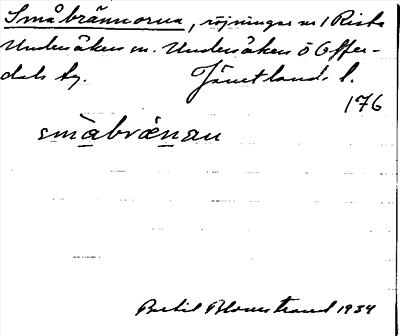 Småbrännorna, röjningar nr 1 Rista
Undersåkers sn. Undersåkers o Offer-
dals tg. Jämtlands l.
176
småbrä̀nan
Bertil Blomstrand 1934